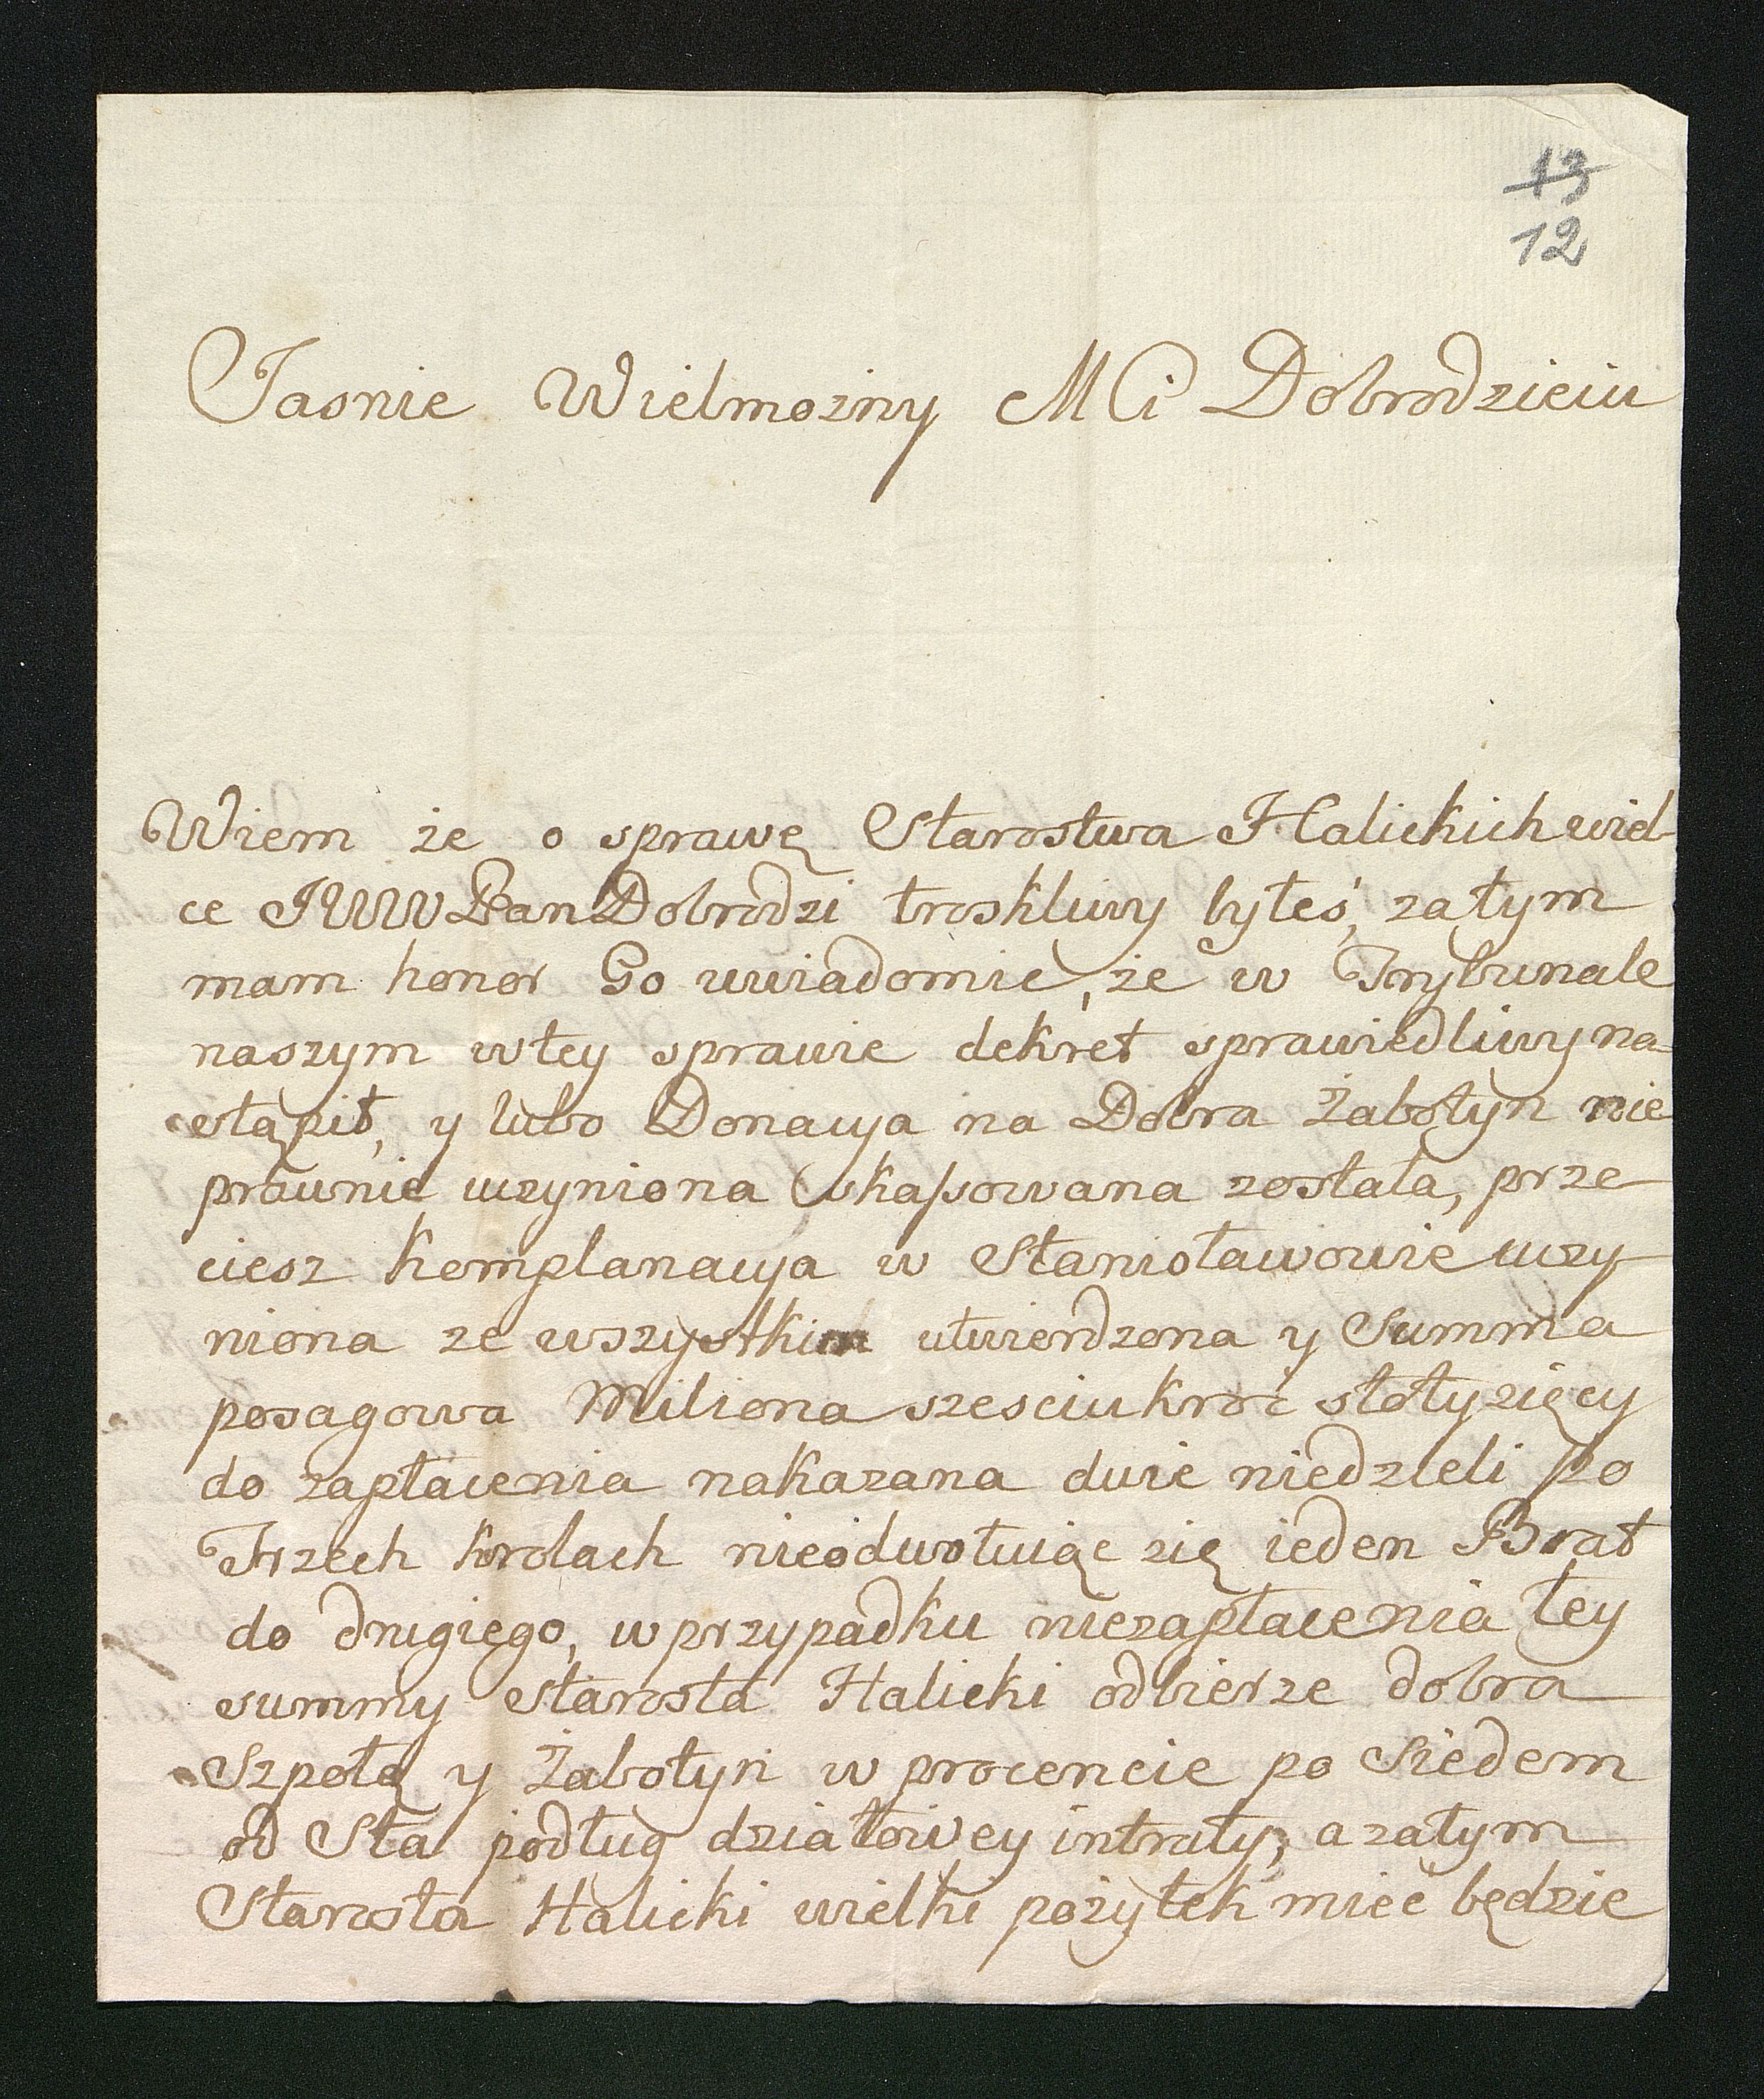 13
12
Jasnie Wielmożny MCi Dobrodzieiu
Wiem że o sprawę Starostwa Halickich wiel-
ce JWW Pan Dobrodzi troskliwy byłeś, zatym
mam honor Go uwiadomić, że w Trybunale
naszym wtey sprawie dekret sprawiedliwy na-
stąpił, y lubo Donacya na Dobra Żabotyn nie
prawnie uczyniona skassowana została, prze
ciesz komplanacya w Stanisławowie uczy-
niona ze wszystkim utwierdzona y Summa
posagowa Miliona szesciukroć stotyzięcy
do zapłacenia nakazana dwie niedzieli po
Trzech Krolach nieodwołuiąc się ieden Brat
do drugiego, w przypadku niezapłacenia tey
summy Starosta Halicki odbierze dobra
Szpołę y Żabotyn w procencie po Siedem
od Sta podług działowey intraty, a zatym
Starosta Halicki wielki pożytek mieć będzie